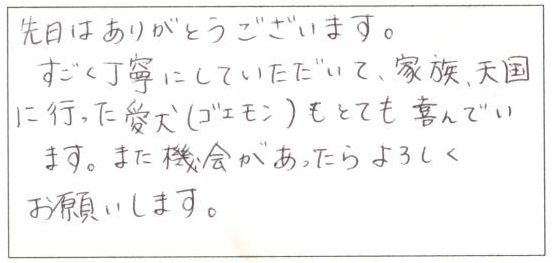 先日はありがとうございます。
すごく丁寧にしていただいて、家族、天国
に行った愛犬(ゴエモン)もとても喜んでい
ます。また機会があったらよろしく
お願いします。